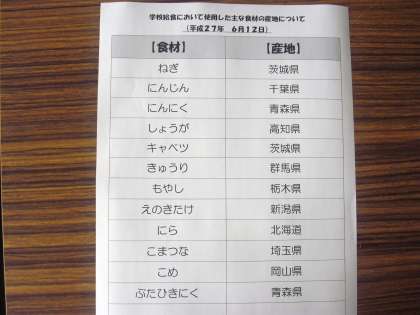 学校給食において使用した主な食材の産地について
(平成27年 6月12日)
【食材】 【産地】
ねぎ 茨城県
にんじん 千葉県
にんにく 青森県
しょうが 高知県
キャベツ 茨城県
きゅうり 群馬県
もやし 栃木県
えのきたけ 新潟県
にら 北海道
こまつな 埼玉県
こめ 岡山県
ぶたひきにく 青森県